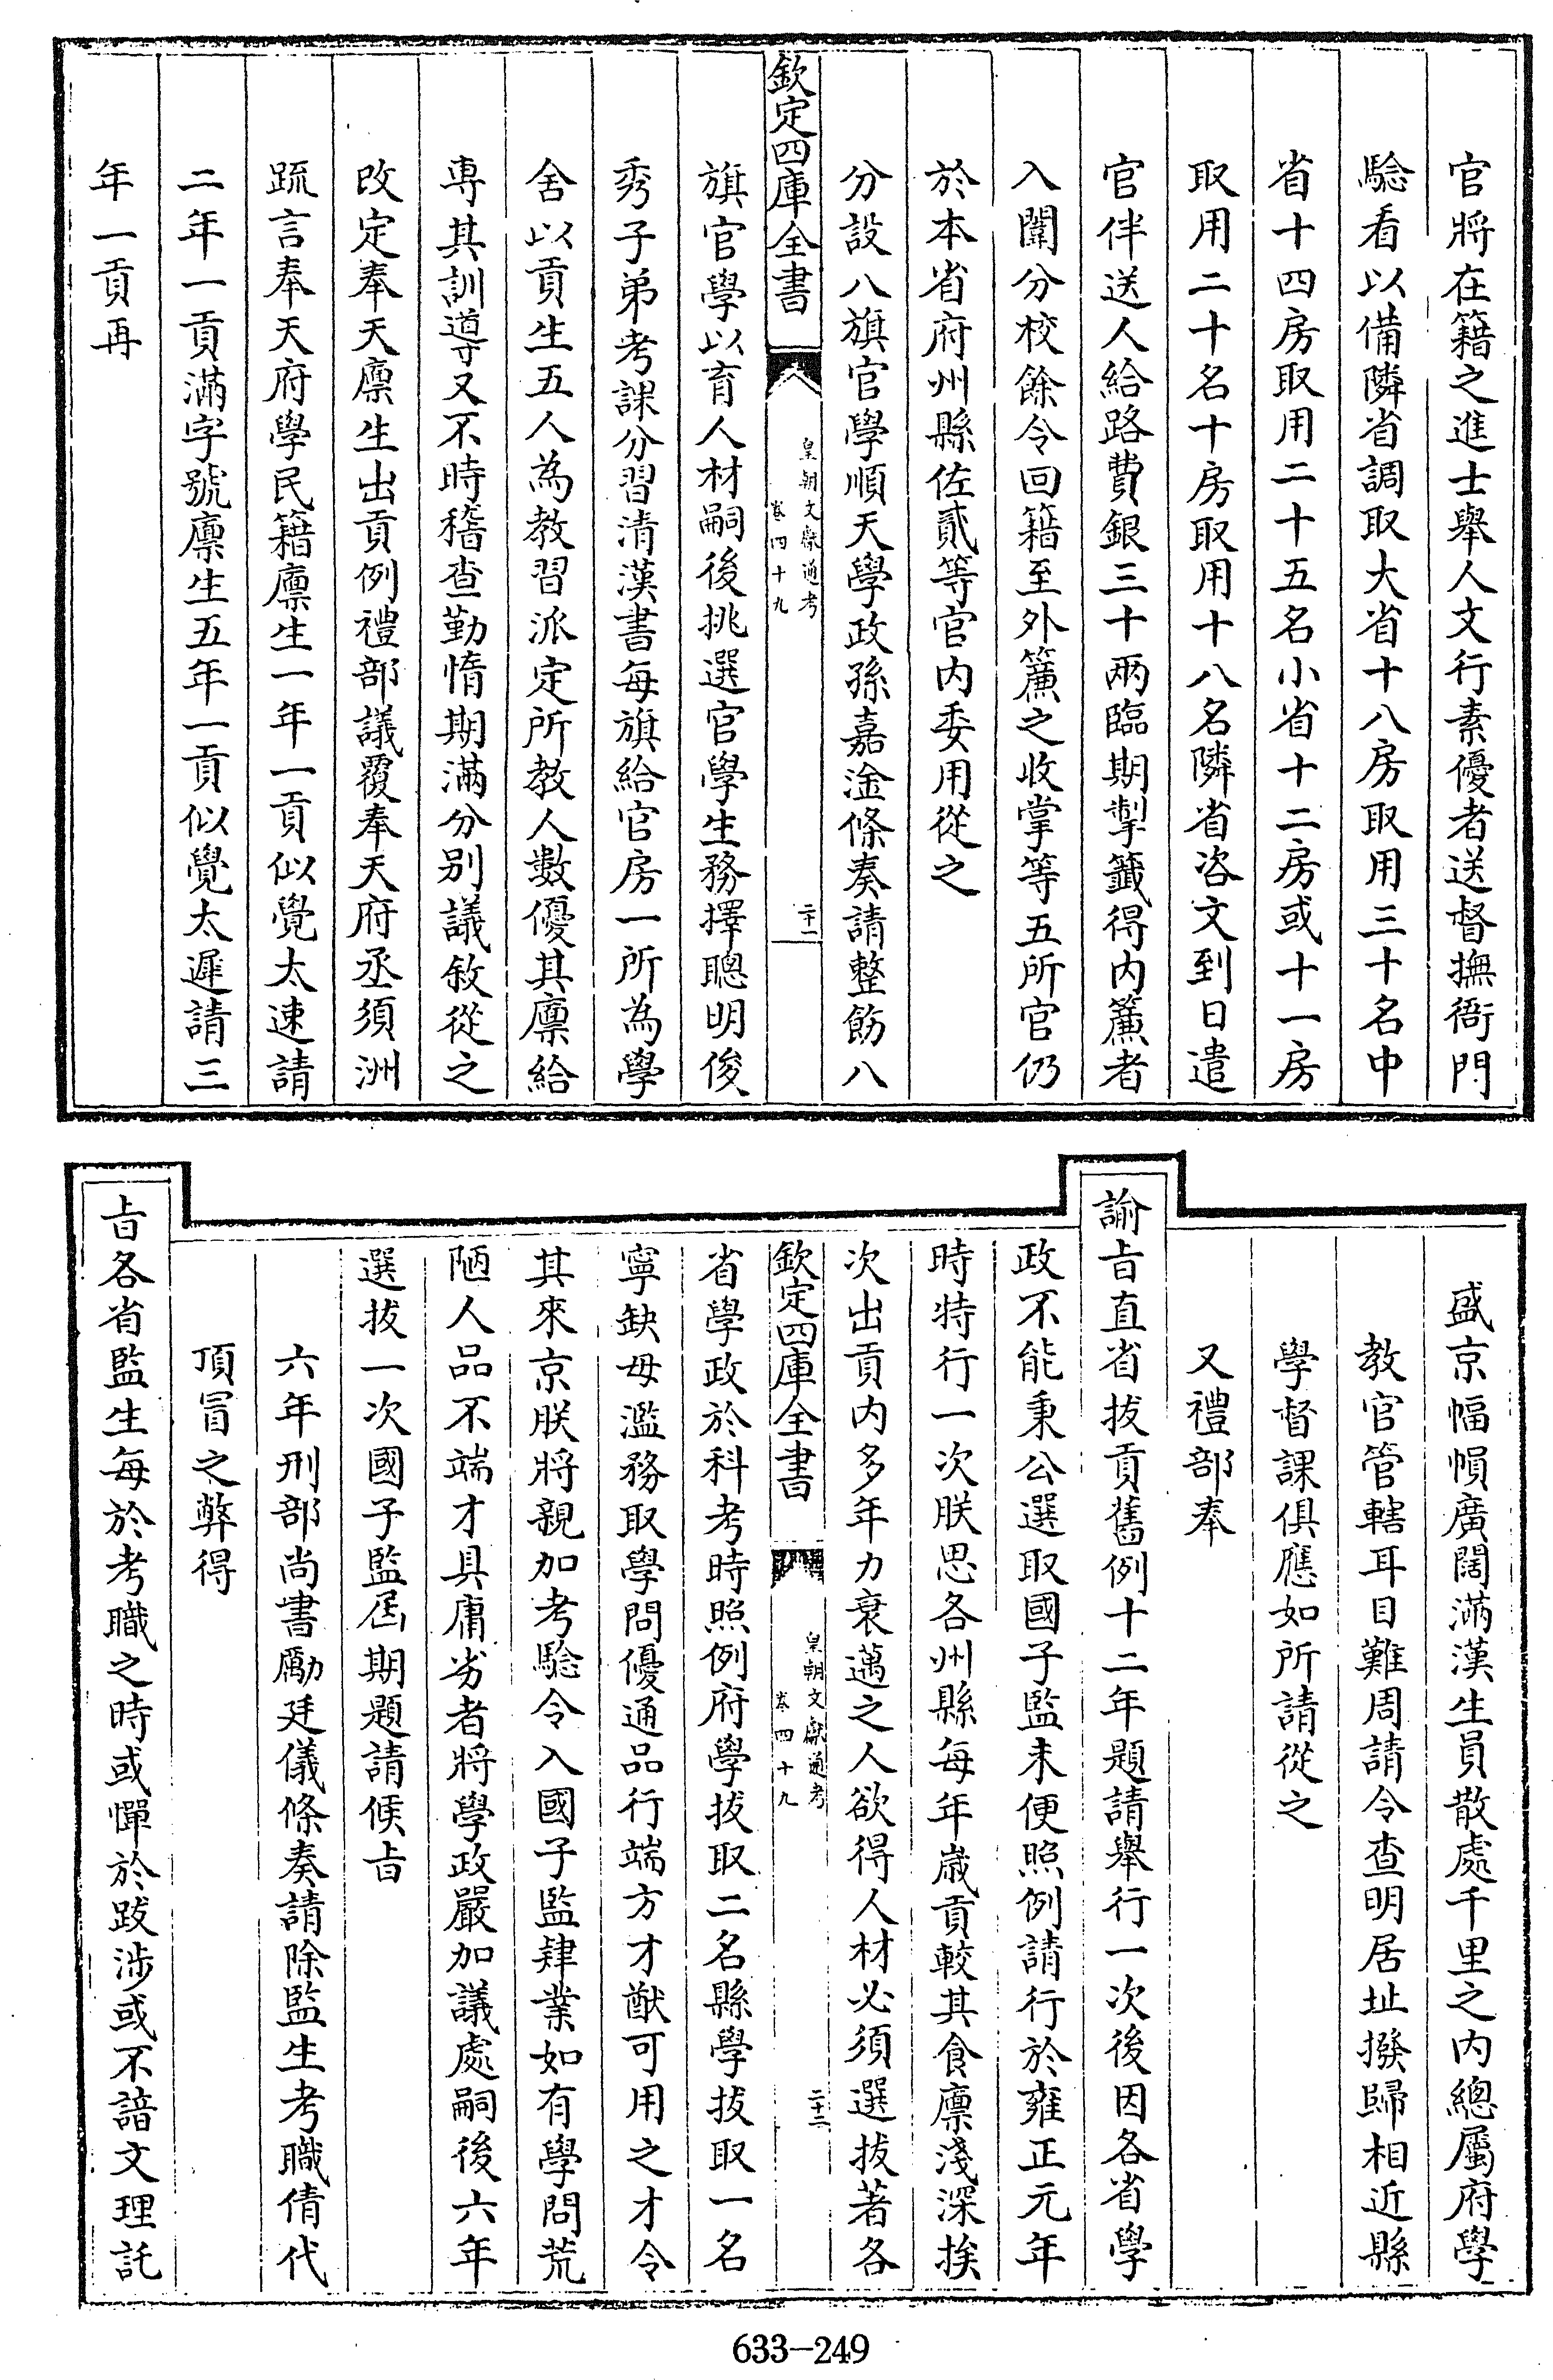 官將在籍之進士舉人文行素優者送督撫衙門
驗看以備隣省調取大省十八房取用三十名中
省十四房取用二十五名小省十二房或十一房
取用二十名十房取用十八名隣省咨文到日遣
官伴送人給路費銀三十兩臨期掣籤得内簾者
入闈分校餘令回籍至外簾之收掌等五所官仍
於本省府州縣佐貳等官内委用從之
分設八旗官學順天學政孫嘉淦條奏請整飭八
欽定四庫全書
皇朝文獻通考
卷四十九
二十一
旗官學以育人材嗣後挑選官學生務擇聰明俊
秀子弟考課分習清漢書每旗給官房一所為學
舍以貢生五人為教習派定所教人數優其廪給
專其訓導又不時稽查勤惰期滿分别議敘從之
改定奉天廪生出貢例禮部議覆奉天府丞須洲
疏言奉天府學民籍廪生一年一貢似覺太速請
二年一貢滿字號廪生五年一貢似覺太遲請三
年一貢再
盛京幅幀廣闊滿漢生員散處千里之内總屬府學
教官管轄耳目難周請令查明居址撥歸相近縣
學督課俱應如所請從之
又禮部奉
諭㫖直省拔貢舊例十二年題請舉行一次後因各省學
政不能秉公選取國子監未便照例請行於雍正元年
時特行一次朕思各州縣每年歲貢較其食廪淺深挨
次出貢内多年力衰邁之人欲得人材必須選拔著各
欽定四庫全書
皇朝文獻通考
卷四十九
二十二
省學政於科考時照例府學拔取二名縣學拔取一名
寧缺毋濫務取學問優通品行端方才猷可用之才令
其來京朕將親加考驗令入國子監肄業如有學問荒
陋人品不端才具庸劣者將學政嚴加議處嗣後六年
選拔一次國子監屆期題請候㫖
六年刑部尚書勵廷儀條奏請除監生考職倩代
頂冒之弊得
㫖各省監生每於考職之時或憚於跋涉或不諳文理託
633-249